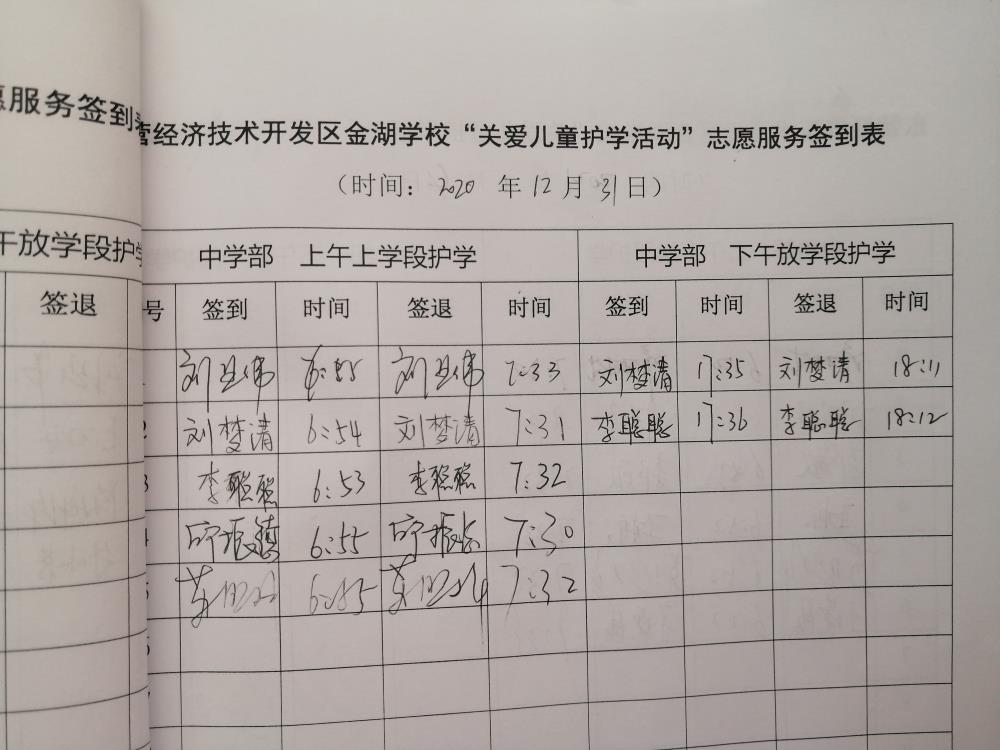 愿服务签到表
营经济技术开发区金湖学校“关爱儿童护学活动”志愿服务签到表
（时间：2020 年 12 月 31 日）
午放学段护学
中学部 上午上学段护学 中学部 下午放学段护学
签退
号 签到 时间 签退 时间 签到 时间 签退 时间
1 刘 伟 刘 伟 7:33 刘梦清 17:35 刘梦清 18:11
2 刘梦清 6:54 刘梦清 7:31 李聪聪 17:36 李聪聪 18:12
3 李聪聪 6:53 李聪聪 7:32
4 6:55 7:30
5 7:32
6